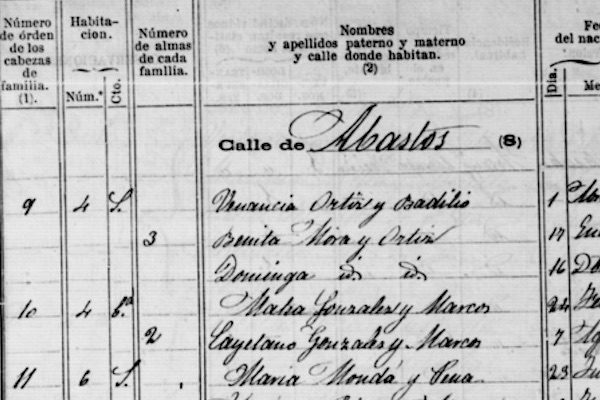 Número de órden de los cabezas de familia. (1).
Habita-cion.
Núm.º
Cto.
Número de almas de cada familia.
Nombres
y apellidos paterno y materno
y calle donde habitan.
(2)
Fec
del nac
Dia.
Me
Calle de Abastos (8)
9 4 S. Venancia Ortiz y Badilio 1
3 Benita Mora y Ortiz 17 En
Dominga id. id. 16 Do
10 4 Gonzalez y Marcos 24 Fe
2 Cayetano Gonzalez y Marcos 7
11 6 S. Maria Mondá y Pena 23 Ju